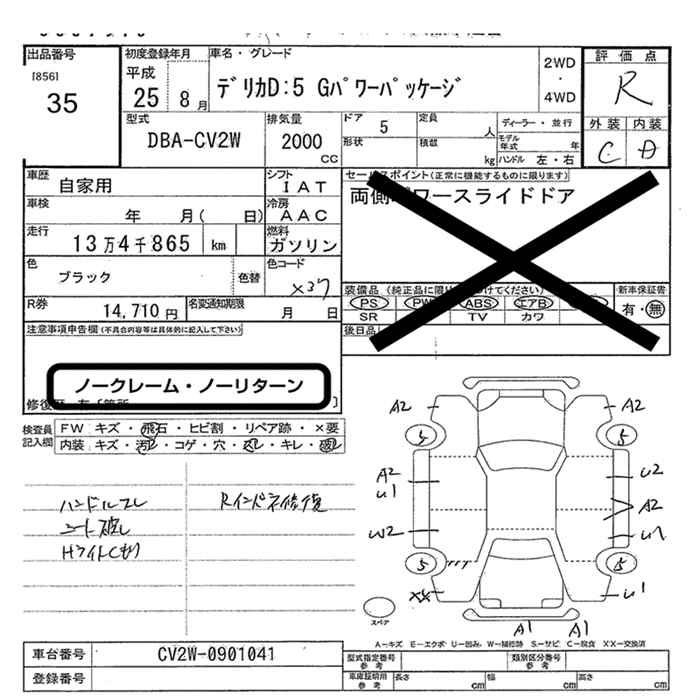 出品番号
[856]
35
初度登録年月
平成
25 8 月
車名・グレード
デリカD:5 Gパワーパッケージ
2WD
・
4WD
評価点
R
外装 内装
C D
型式
DBA-CV2W
排気量
2000
CC
ドア 5
形状
定員
人
積載
kg
ディーラー・並行
モデル年式 年
ハンドル 左・右
車歴
自家用
シフト
IAT
車検
年 月( 日)
冷房
AAC
走行
13万4千865 km
燃料
ガソリン
色
ブラック
色替
色コード
X37
R券
14,710 円
名変通知期限
月 日
セールスポイント(正常に機能するものに限ります)
両側パワースライドドア
装備品(純正品に限り
けてください)
新車保証書
PS PW ABS エアB
SR TV カワ
有・無
後日品
注意事項申告欄(不具合内容等は具体的に記入して下さい)
ノークレーム・ノーリターン
修復歴
検査員
記入欄
FW キズ・飛石・ヒビ割・リペア跡・×要
内装 キズ・汚レ・コゲ・穴・スレ・キレ・破レ
ハンドルスレ
シート破レ
Rインパネ修復
A2 A2
5 5
A2
U1
U2
A2
W2
5 5
XX U1
A1 A1
スペア
A−キズ E−エクボ U−凹み W−補修跡 S−サビ C−腐食 XX−交換済
車台番号
CV2W-0901041
登録番号
型式指定番号
参考
類別区分番号
参考
車庫証明用
参考
長さ cm
幅 cm
高さ cm